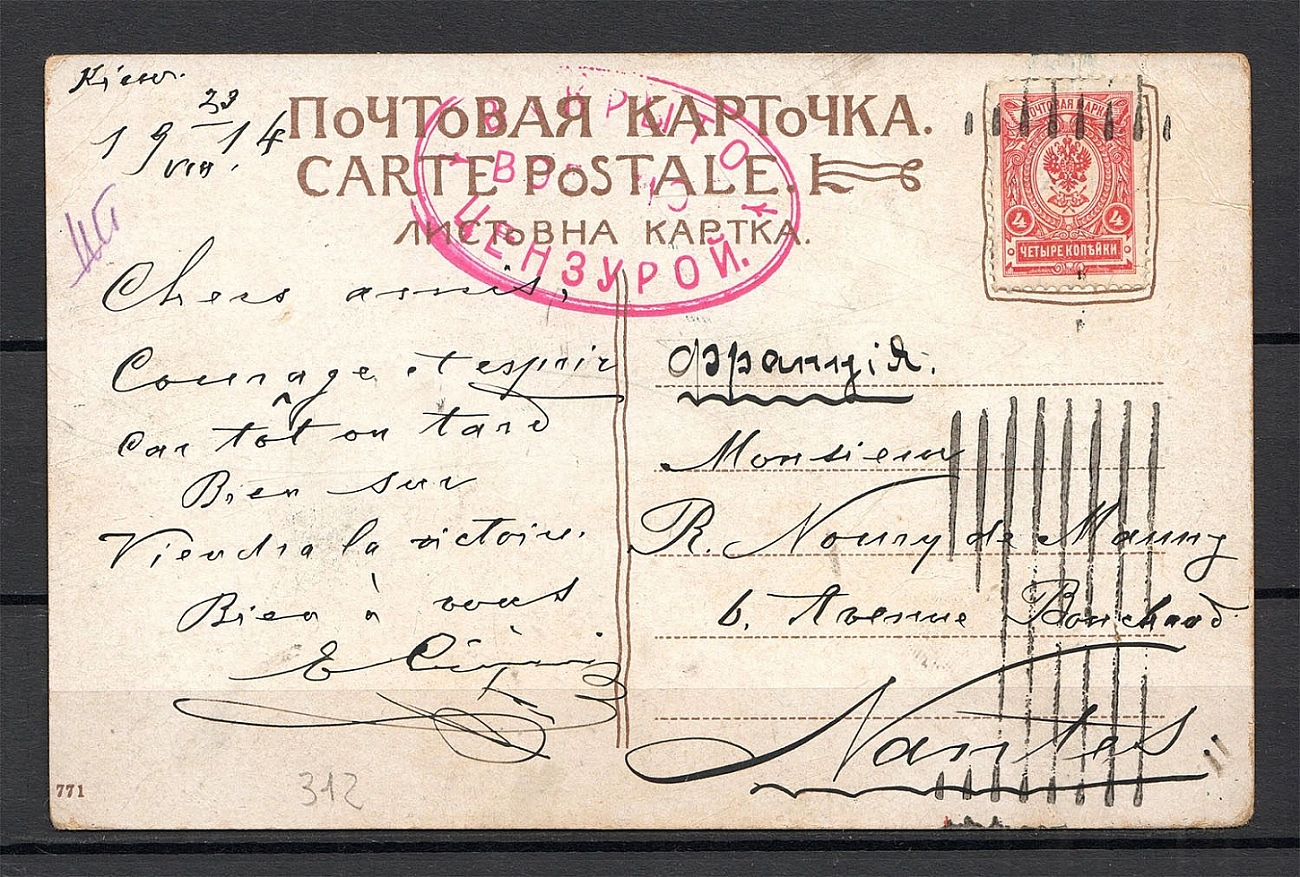 Kiew.
23
19 VIII. 14
ПОЧТОВАЯ КАРТОЧКА.
CARTE POSTALE.
ЛИСТОВНА КАРТКА.
ВСКРЫТО
ЦЕНЗУРОЙ.
ПОЧТОВАЯ МАРКА
4 4
ЧЕТЫРЕ КОПѢЙКИ
Chers amis,
Courage et espoir
Car tôt ou tard
Bien sur
Viendra la victoire.
Bien à vous
E
Франція.
Monsieur
R. Noury de Mauny
6. Avenue Bouchaud
Nantes
771
312